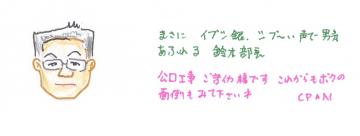 まさに イブシ銀、シブ〜い声で男気
あふれる 鈴木部長
公口工事 ご苦労様です これからもボクの
面倒もみて下さいネ